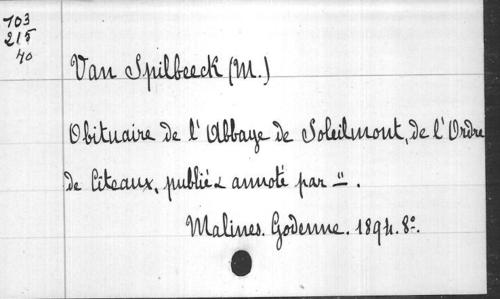 103
215
40
Van Spilbeeck (M.)
Obituaire de l'Abbaye de Soleilmont, de l'Ordre
de Citeaux, publié & annoté par ".
Malines. Godenne. 1894. 8º.